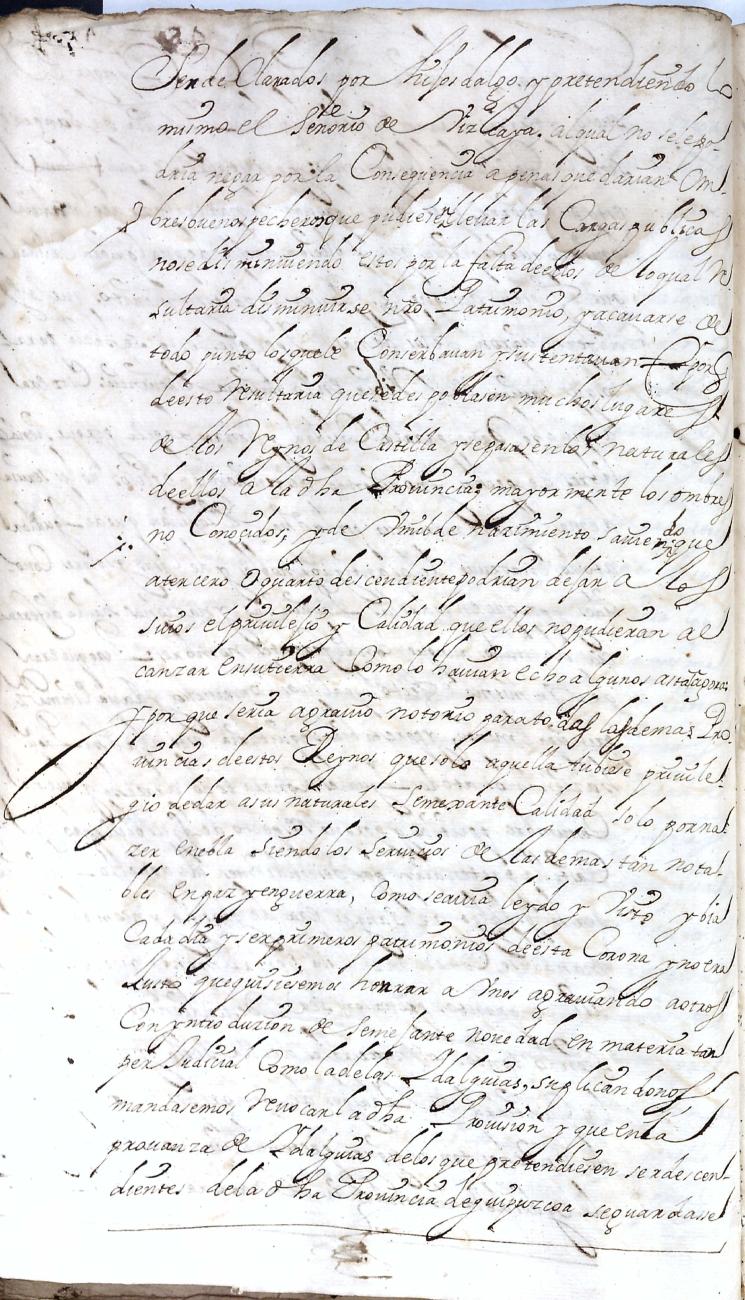 Ser declarados por hijosdalgo y pretendiendo lo
mismo el señorio de Vizcaya. al qual no se le po-
dria negar por la Consequencia apenas quedarian Om-
bres buenos pecheros que pudiesen llevar las Cargas publicas
no se disminuiendo estos por la falta de ellos de lo qual Re
sultaria disminuirse nro Patrimonio, y acauarse de
todo punto los que le Conserbauan y sustentauan por q
de esto Resultaria que se despoblasen muchos lugares
de llos Reynos de Castilla y se pasasen los naturales
de ellos a la dha Provincia; mayormente los ombres
no Conocidos, y de Vmilde nazimiento sauiendo que
a tercero o quarto descendiente podrian dejar a los
suios el privilejio y Calidad que ellos no pudieran al
canzar en su tierra Como lo hauian echo algunos asta agora
y por que seria agrauio notorio para todas las demas Pro
uincias de estos Reynos que solo aquella tubiese privile-
gio de dar a sus naturales Semexante Calidad solo por na-
zer en ella siendo los servicios de llas demas tan nota-
bles en paz y en guerra, Como se auia leydo y Visto y bia
Cada dia y ser primeros patrimonios de esta Corona y no era
Justo que quisiesemos honrrar a Vnos agrauiando a otros
Con yntroduzion de semejante nouedad en materia tan
perJudicial Como la de las Ydalguias, suplicandonos
mandasemos Reuocar la dha Prouision y que en la
prouanza de Ydalguias de los que pretendiesen ser descen-
dientes de la dha Prouincia de guipuzcoa se guardasse